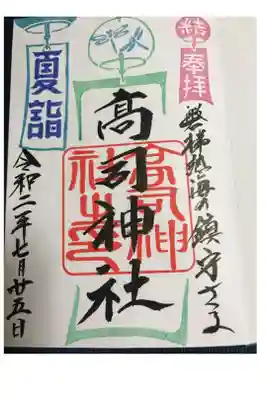 奉拝
磐梯熱海の鎮守さま
高司神社
高司神社之印
夏詣
令和二年七月廿五日